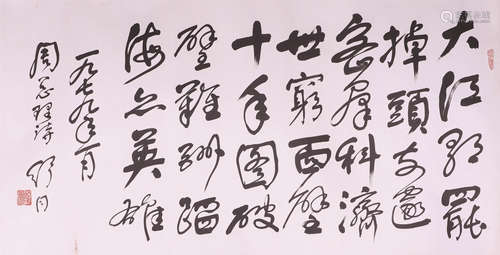 大江歌罷
掉頭东邃
密群科濟
世窮面壁
十年图破
壁難酬蹈
海亦英雄
一九七九年一月
周总理詩 舒同